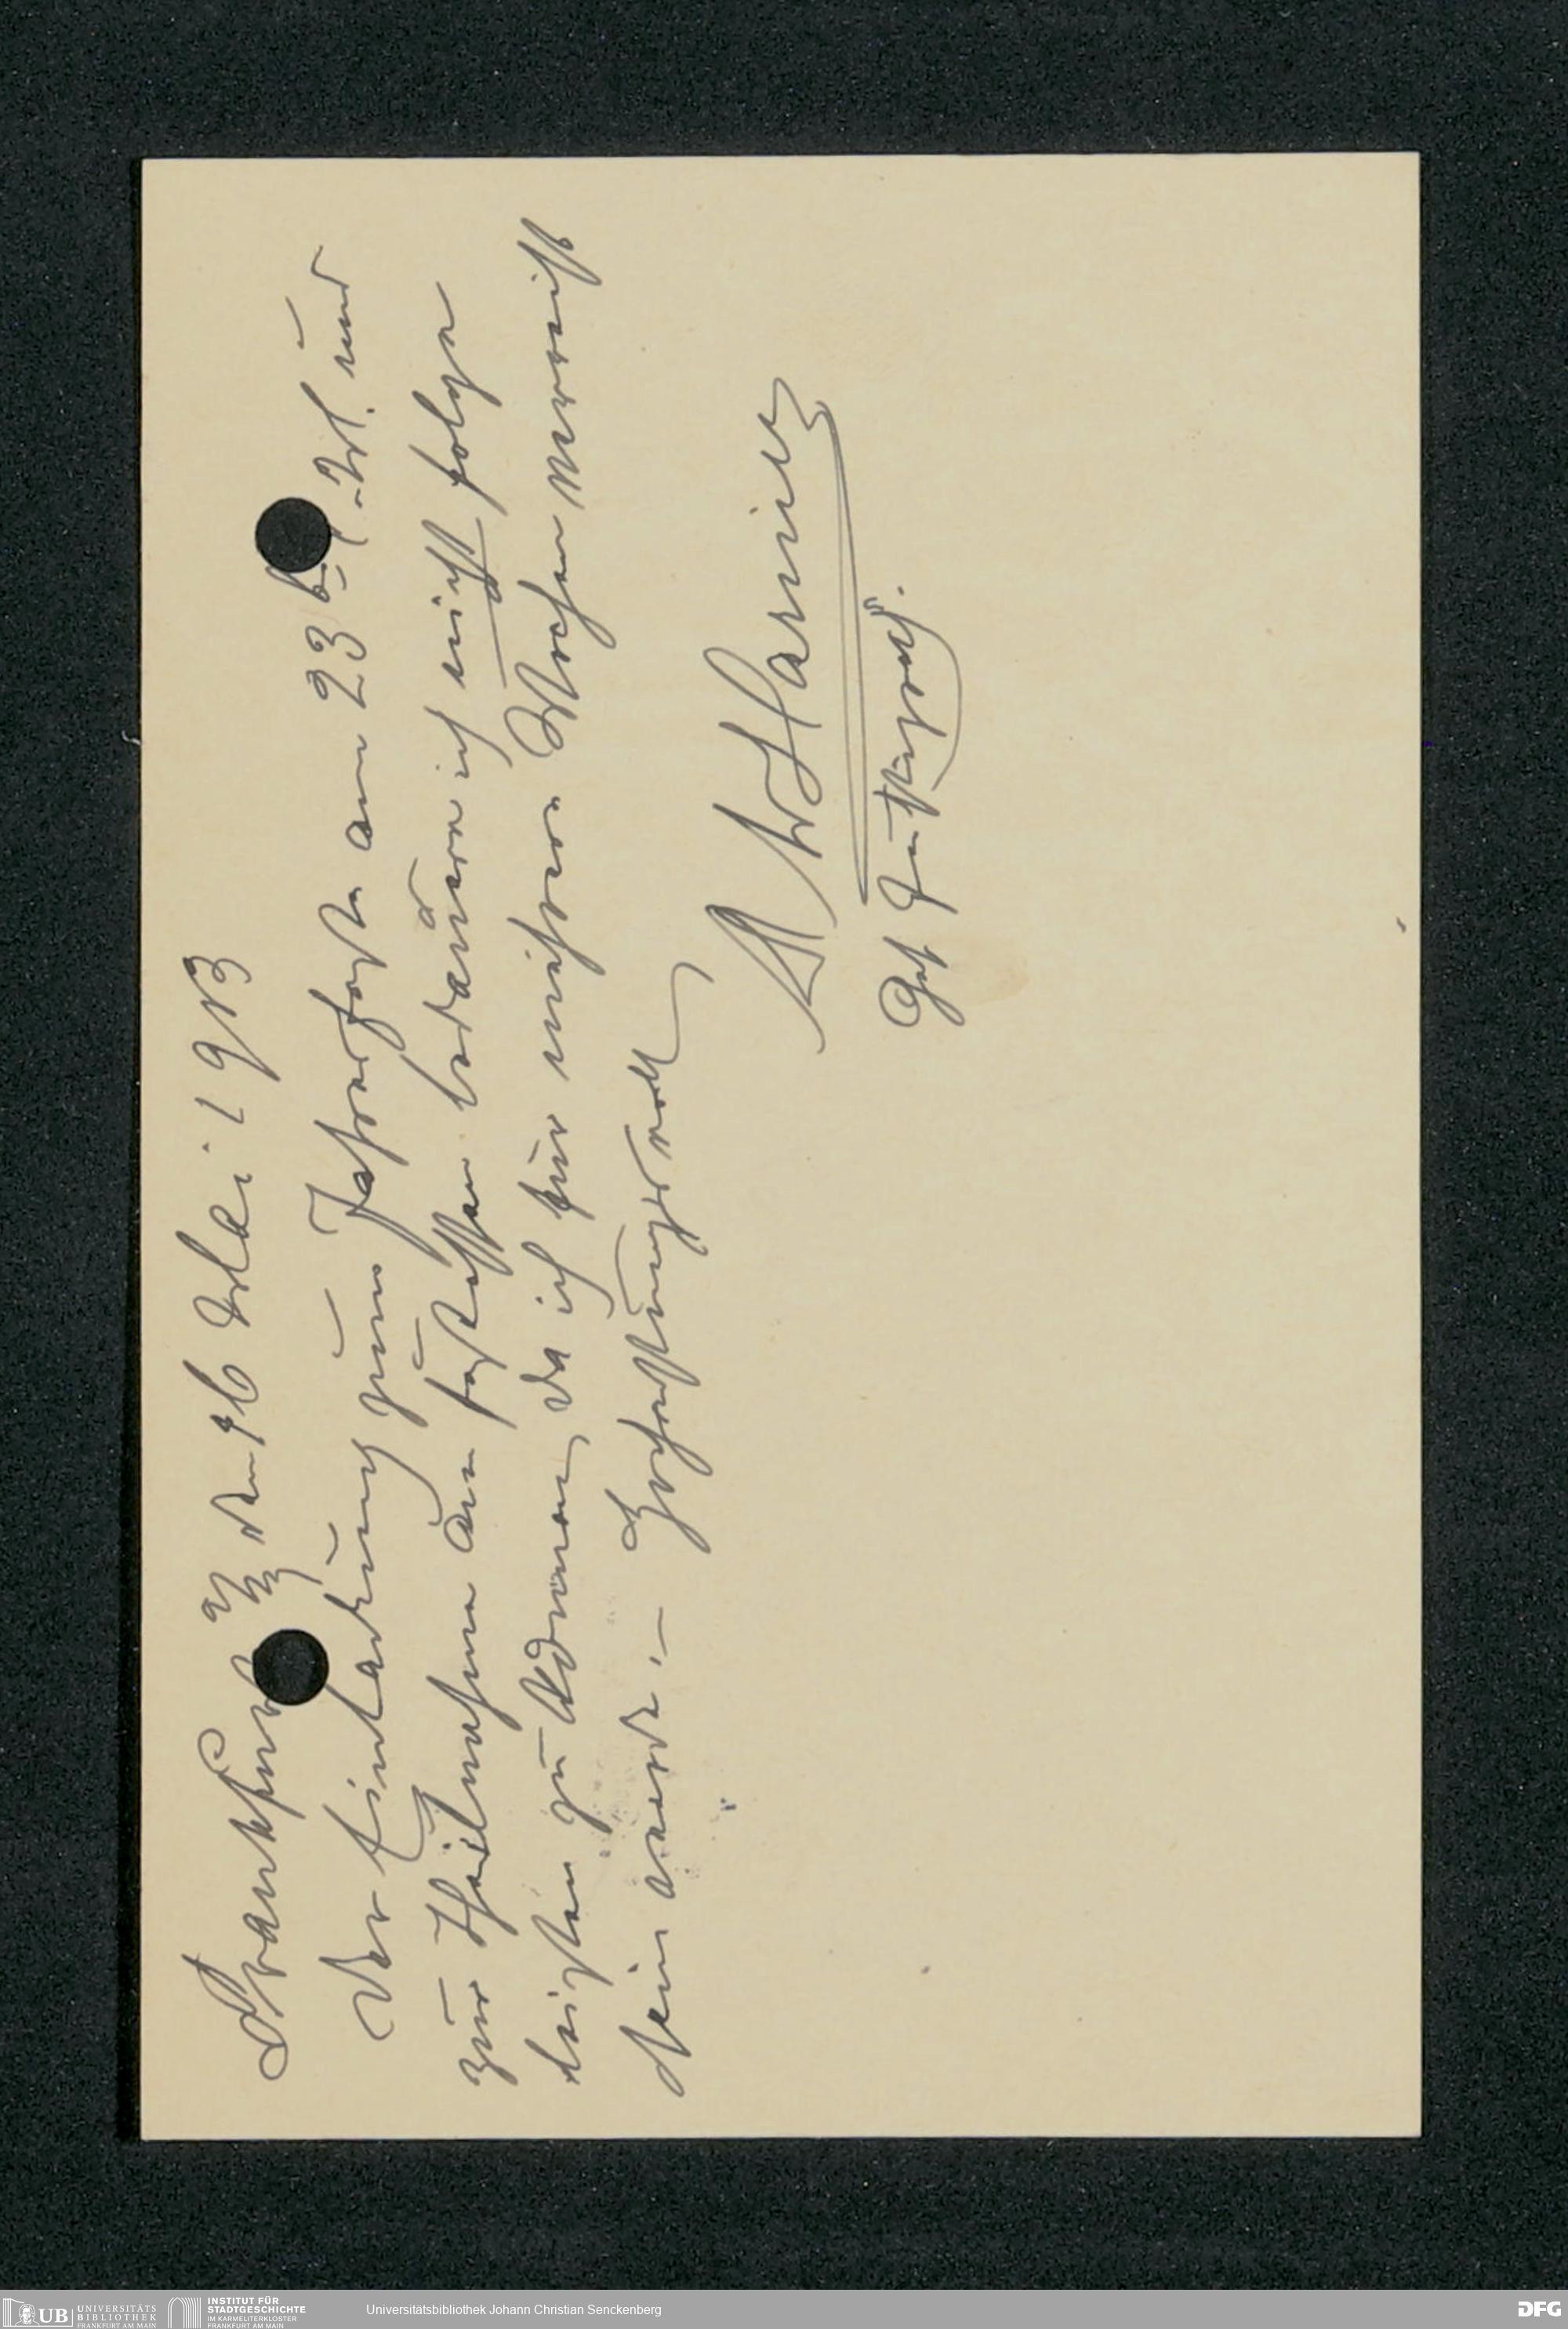 Frankfurt a/M den 16 Mai 1913
Der Einladung zum Jahresfeste am 23 d. Mt. und
zur Theilnahme am Festessen bedaure ich nicht Folge
leisten zu können, da ich für mehrere Wochen verreist
sein werde. – Hochachtungsvoll
A. v Harnier
Geh Justizrath.
UB UNIVERSITÄTS
BIBLIOTHEK
FRANKFURT AM MAIN
INSTITUT FÜR
STADTGESCHICHTE
IM KARMELITERKLOSTER
FRANKFURT AM MAIN
Universitätsbibliothek Johann Christian Senckenberg
DFG